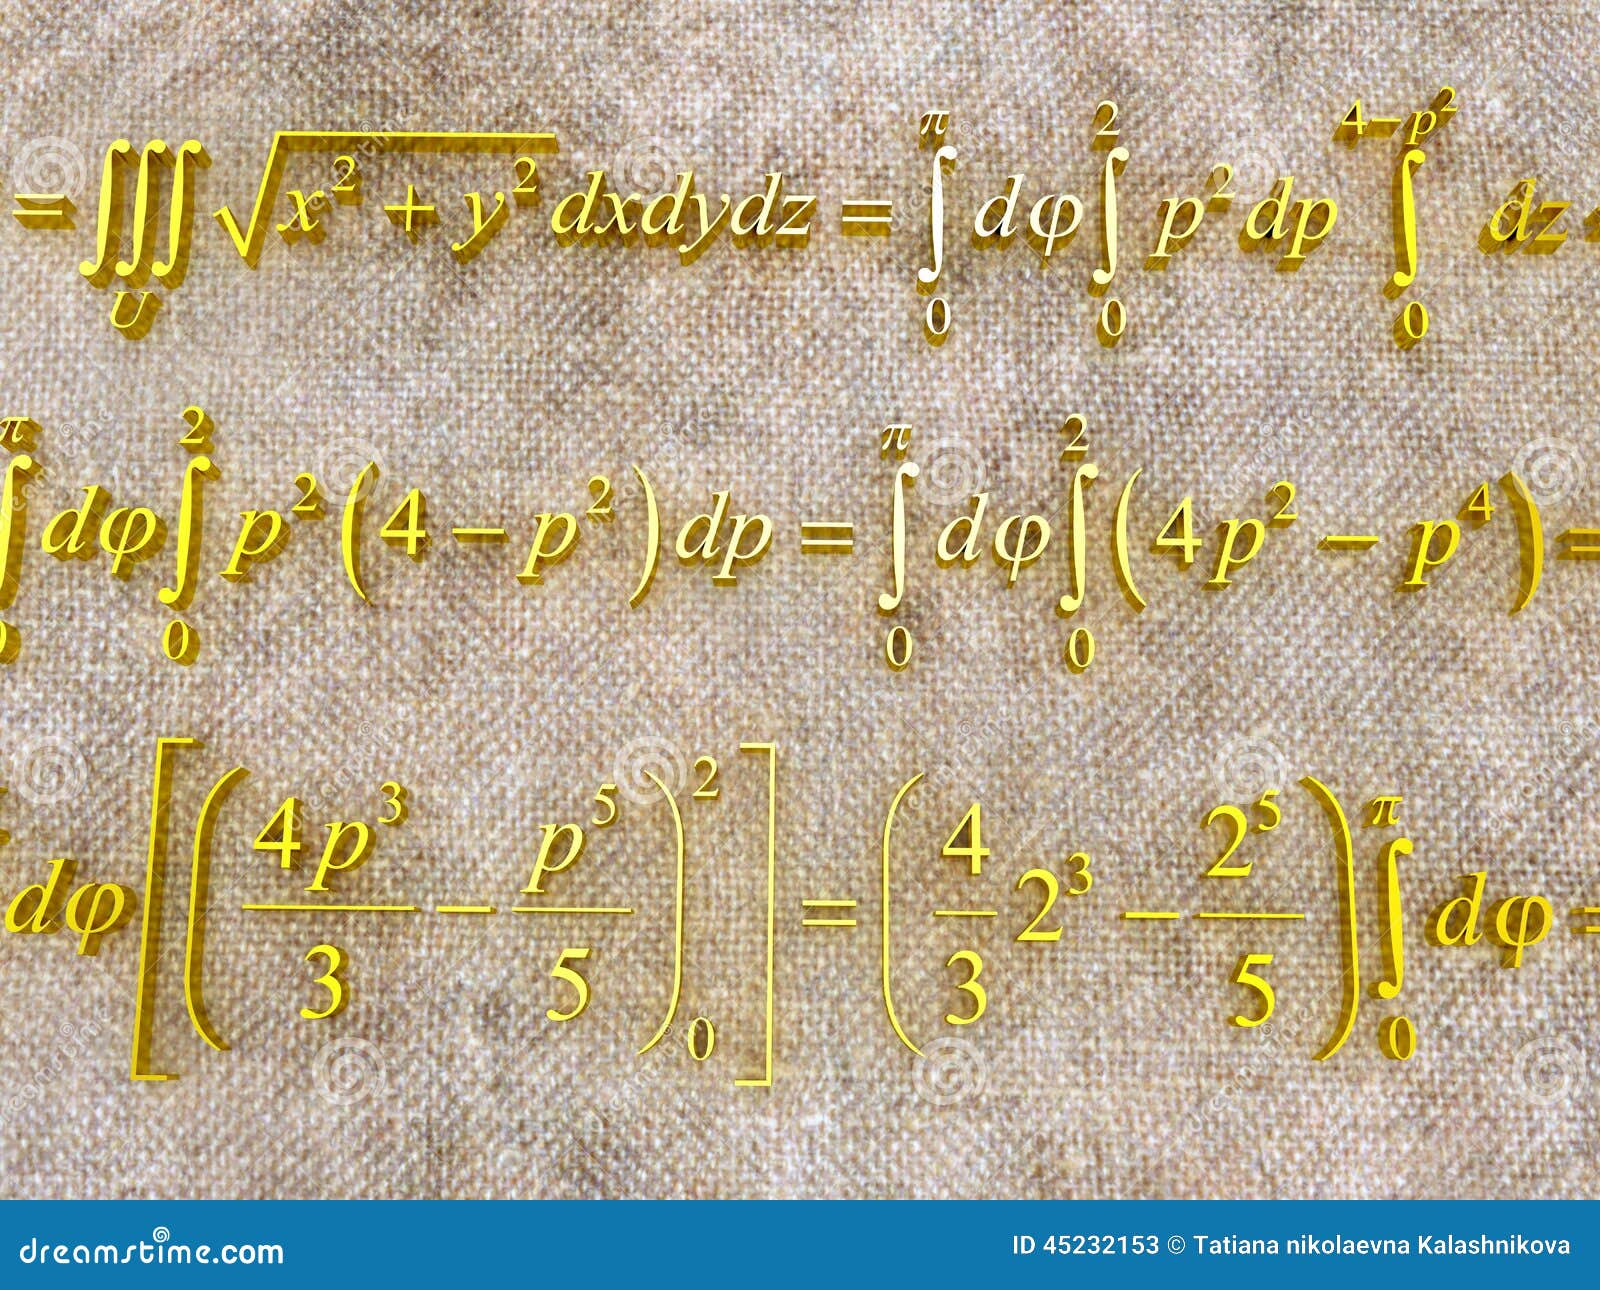 =∭_U √(x² + y²) dxdydz = ∫_0^π dφ ∫_0^2 p² dp ∫_0^(4−p²) dz =
∫_0^π dφ ∫_0^2 p² (4 − p²) dp = ∫_0^π dφ ∫_0^2 (4p² − p⁴) =
dφ [(4p³/3 − p⁵/5)_0^2] = (4/3 2³ − 2⁵/5) ∫_0^π dφ =
dreamstime.com ID 45232153 © Tatiana nikolaevna Kalashnikova